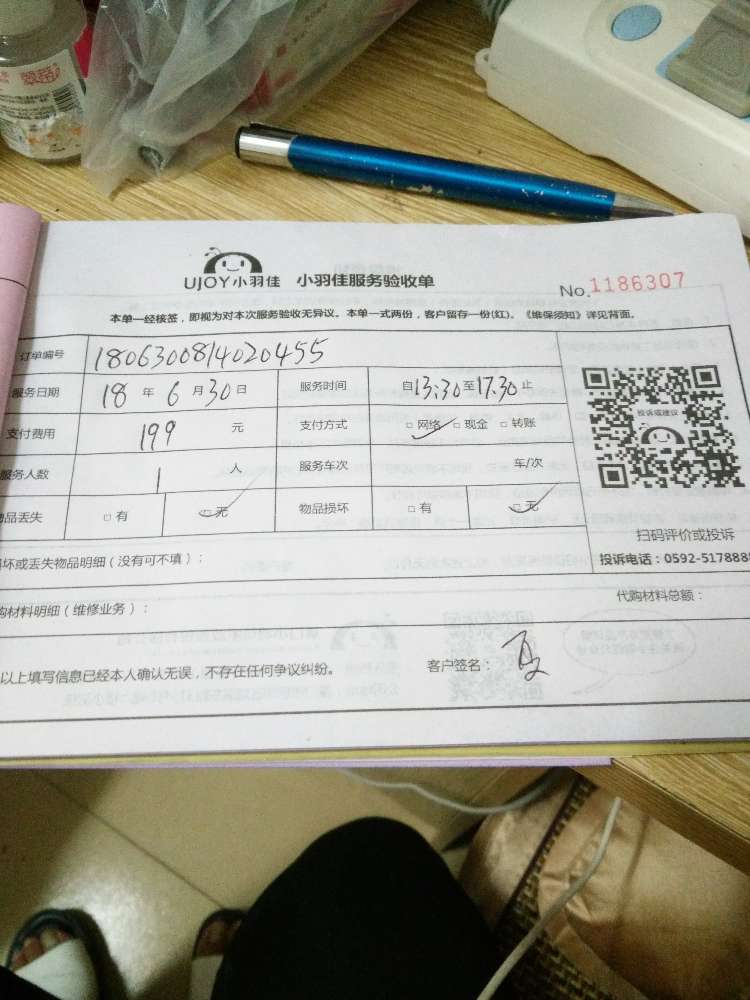 UJOY小羽佳 小羽佳服务验收单 No.1186307
本单一经核签，即视为对本次服务验收无异议。本单一式两份，客户留存一份(红)。《维保须知》详见背面。
订单编号 180630081402045​5
服务日期 18 年 6 月 30 日 服务时间 自13:30至17.30止
支付费用 199 元 支付方式 □网络 □现金 □转账
服务人数 1 人 服务车次 车/次
投诉或建议
物品丢失 □有 □无 物品损坏 □有 □无
扫码评价或投诉
投诉电话：0592-517888
坏或丢失物品明细（没有可不填）：
购材料明细（维修业务）： 代购材料总额：
以上填写信息已经本人确认无误，不存在任何争议纠纷。 客户签名：